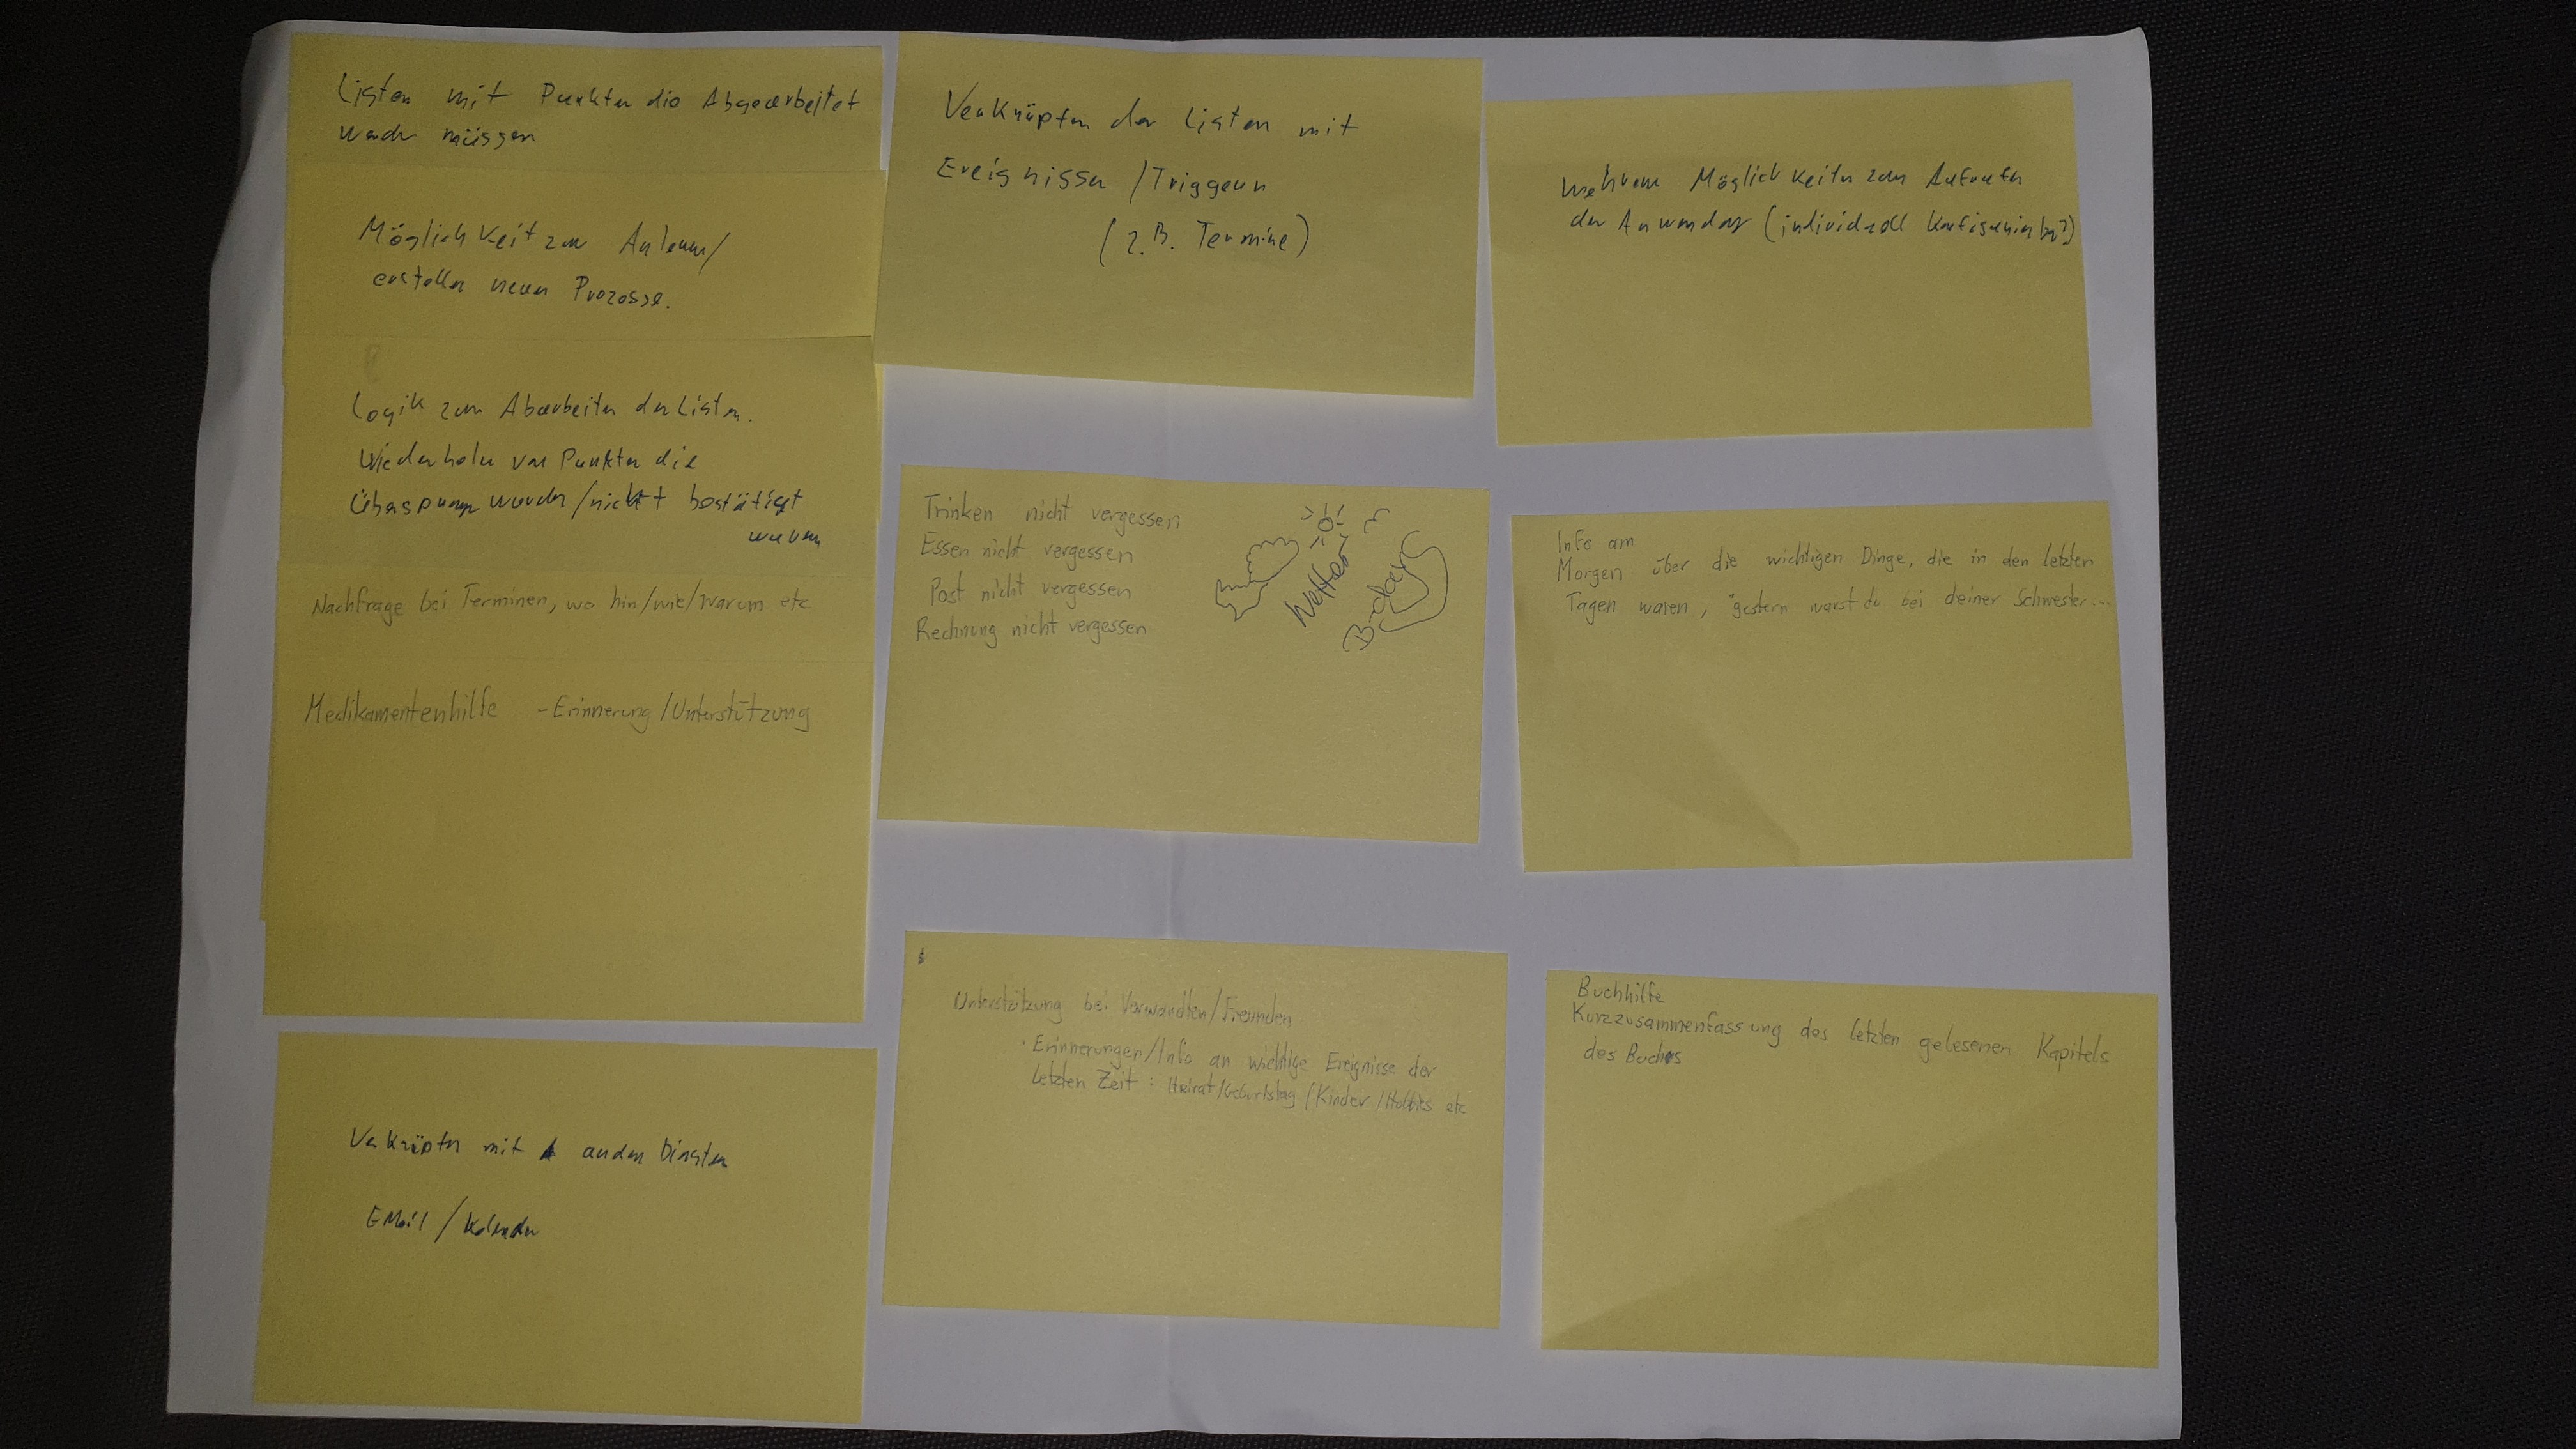 Listen mit Punkten die Abgearbeitet
werden müssen
Möglichkeit zum Anlernen/
erstellen neuer Prozesse.
Logik zum Abarbeiten der Listen.
Wiederholen von Punkten die
Übersprungen wurden/nicht bestätigt
wurden
Nachfrage bei Terminen, wo hin/wie/warum etc
Medikamentenhilfe - Erinnerung/Unterstützung
Verknüpfen mit anderen Diensten
EMail / Kalender
Verknüpfen der Listen mit
Ereignissen / Triggern
(z.B. Termine)
Trinken nicht vergessen
Essen nicht vergessen
Post nicht vergessen
Rechnung nicht vergessen
Wetter
Unterstützung bei Verwandten/Freunden
· Erinnerungen/Info an wichtige Ereignisse der
letzten Zeit : Heirat/Geburtstag/Kinder/Hobbies etc
Mehrere Möglichkeiten zum Aufrufen
der Anwendung (individuell Konfigurierbar?)
Info am
Morgen über die wichtigen Dinge, die in den letzten
Tagen waren, "gestern warst du bei deiner Schwester...
Buchhilfe
Kurzzusammenfassung des letzten gelesenen Kapitels
des Buches